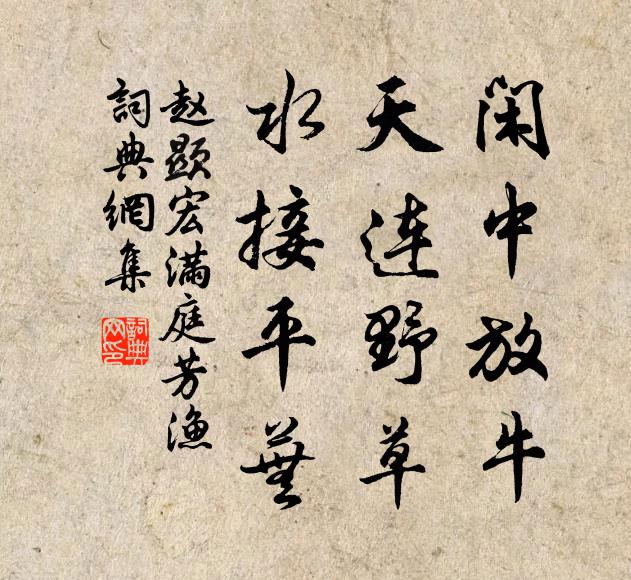 闲中放牛
天连野草
水接平蕪
赵顯宏满庭芳渔
詞典網集
詞典
网印